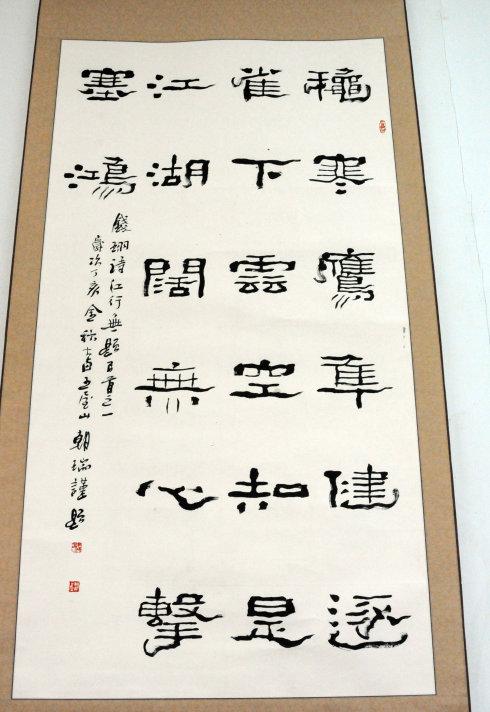 穐寒鷹隼健逐
雀下雲空知是
江湖闊無心擊
塞鴻
錢珝詩江行無題百首之一
歲次丁亥金秋五臺山朝瑞謹題